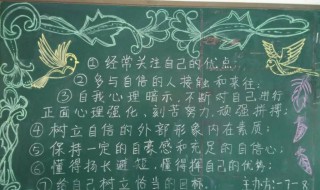 ① 经常关注自己的优点
② 多与自信的人接触和来往；
③ 自我心理暗示，不断对自己进行
正面心理强化，刻苦努力，顽强拼搏；
④ 树立自信的外部形象内在素质；
⑤ 保持一定的自豪感和充足的自信心；
⑥ 懂得扬长避短，懂得挥自己的优势；
⑦ 给自己树立恰当的目标。
主办方：